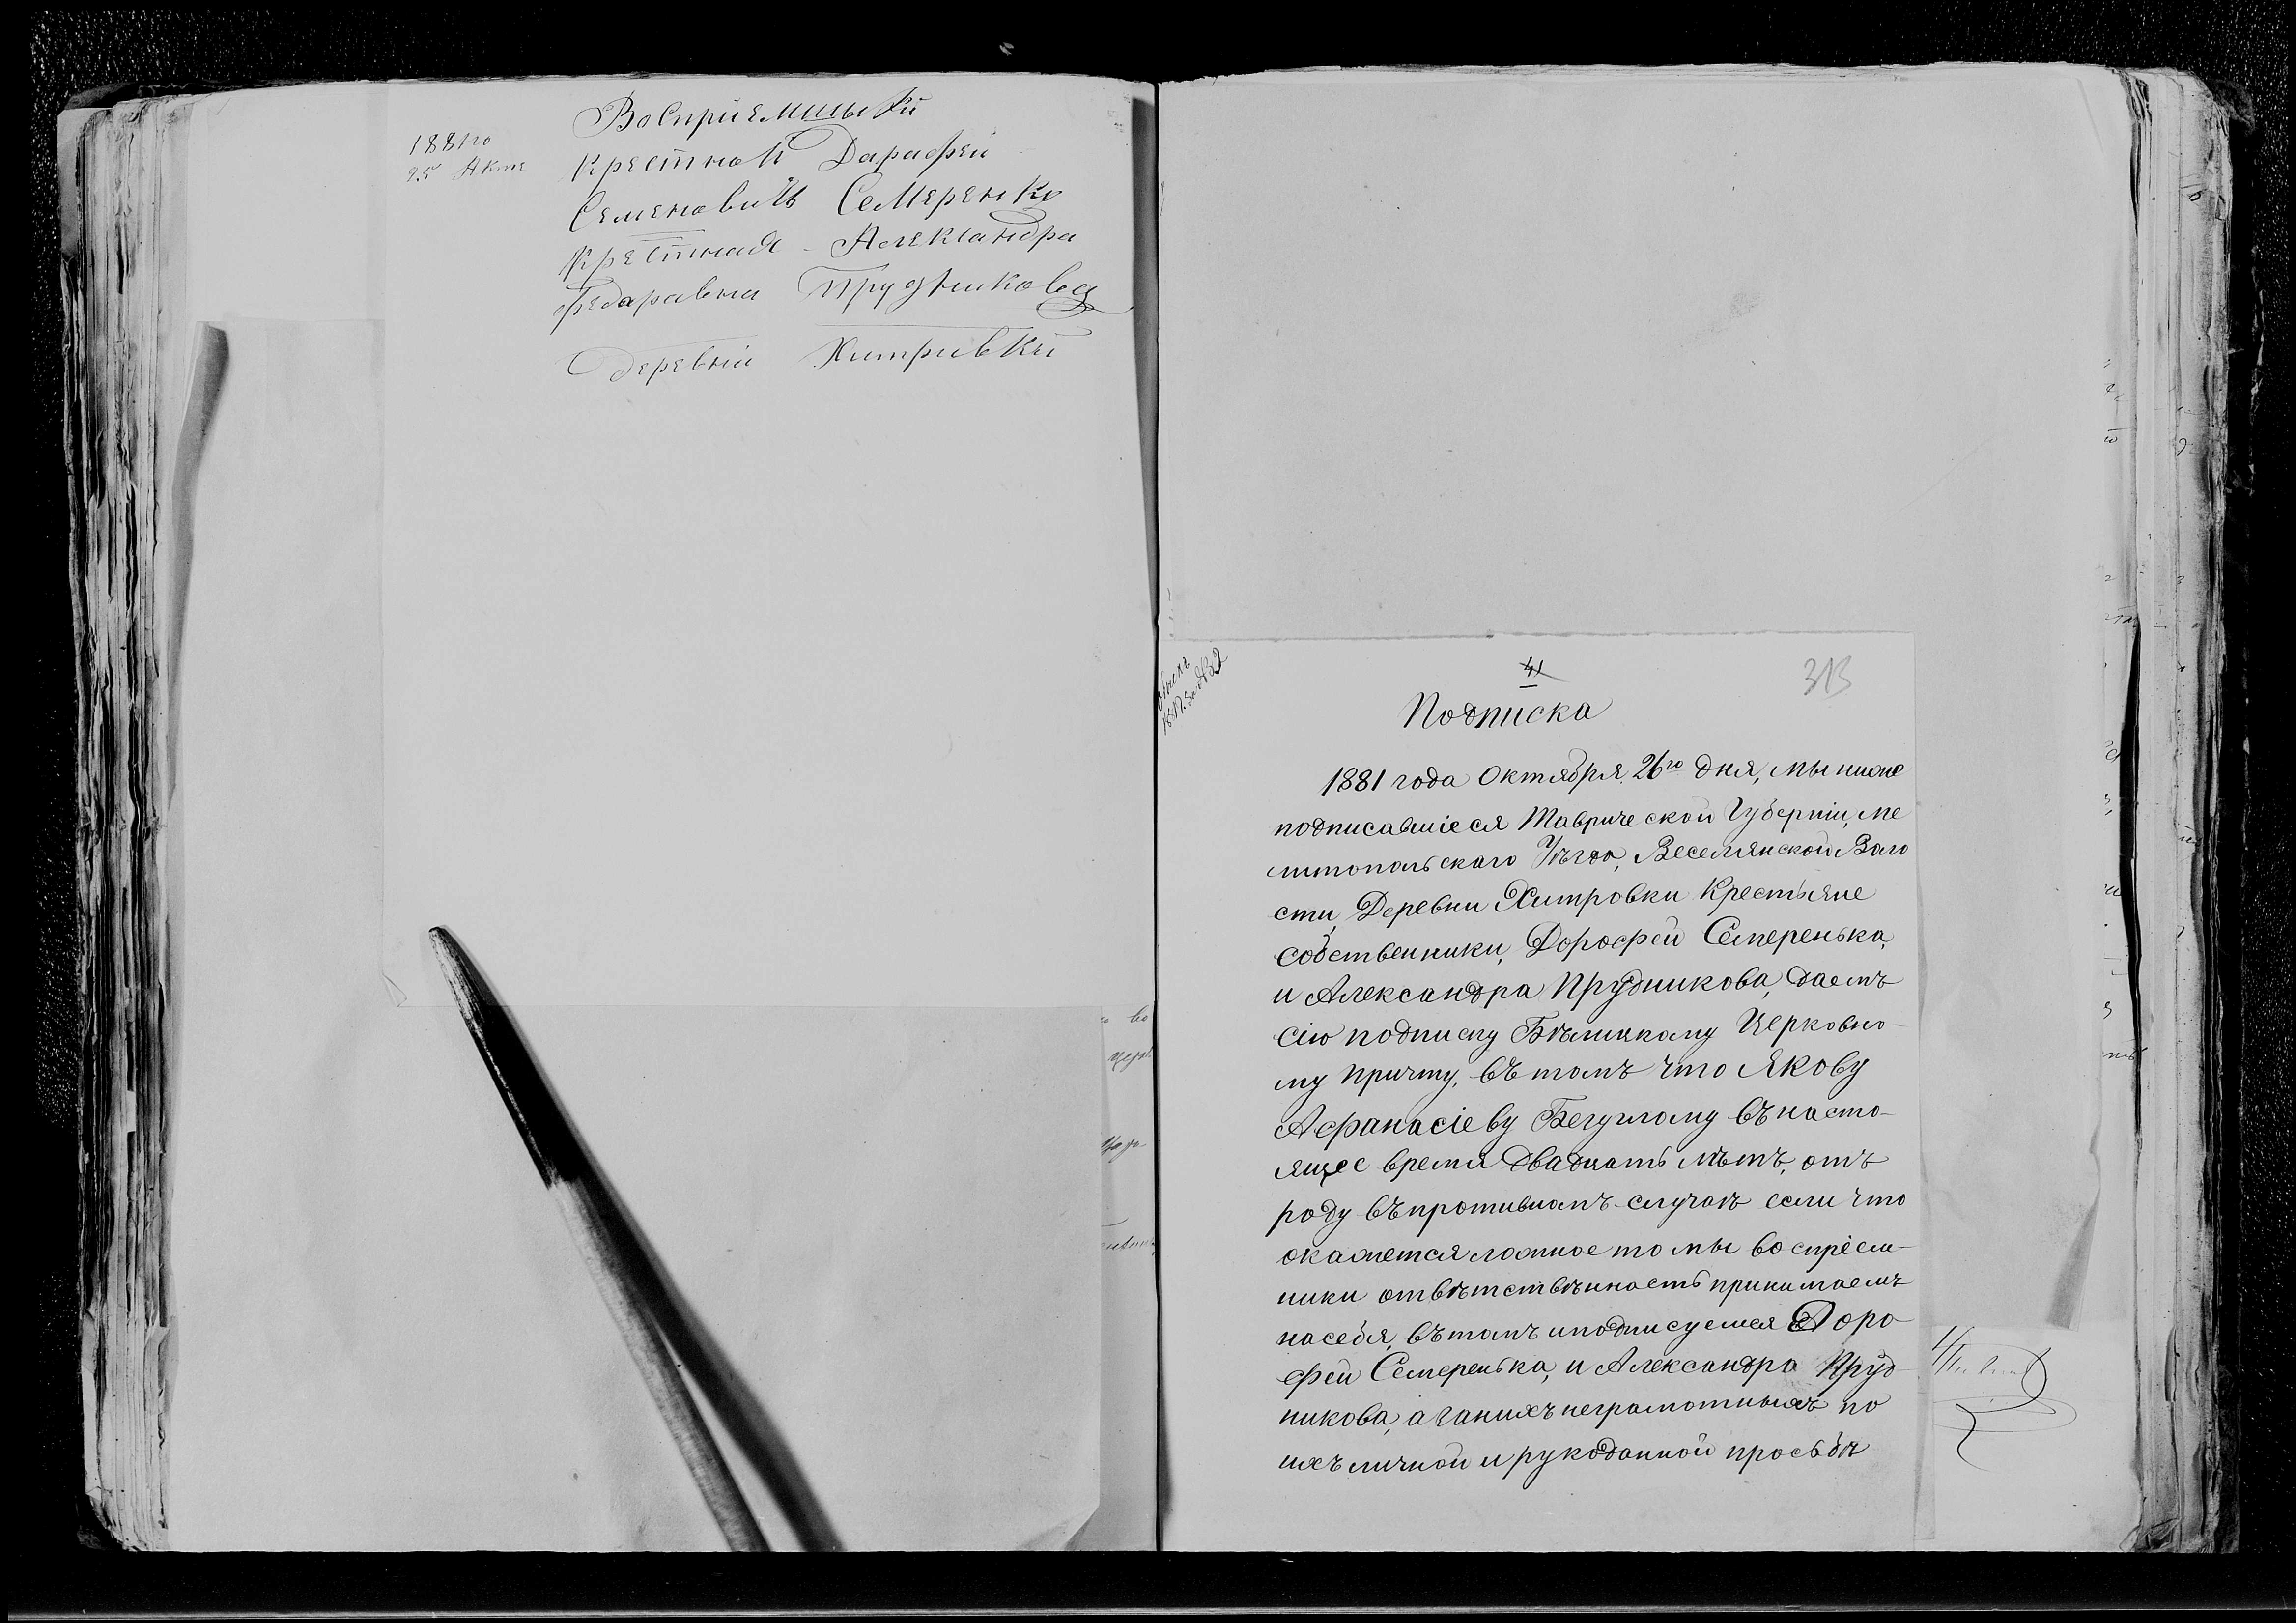 1881го
25 Акте
Восприемныки
крестной Дарафей
Семеновичъ Семеренко
крестная Александра
Федаравна Прудникова
деревни Хитривки
41
313
Подписка
1881 года Октября 26го дня, мы ниже
подписавшіеся Таврической Губерніи, Ме
литопольскаго Уѣзда, Веселянской Воло
сти, Деревни Хитровки Крестьяне
собственники, Дорофей Семеренька,
и Александра Прудникова, даемъ
сію подписку Церковно-
му причту, въ томъ что Якову
Афанасіеву Бегулому въ насто-
ящее время двадцать лѣтъ, отъ
роду въ противномъ случаѣ если что
окажется ложное то мы воспріем-
ники отвѣтствѣнность принимаемъ
на себя, въ томъ и подписуемся Доро
фей Семеренька, и Александра Пруд
никова, а за нихъ неграмотныхъ по
ихъ личной и рукоданной просьбѣ